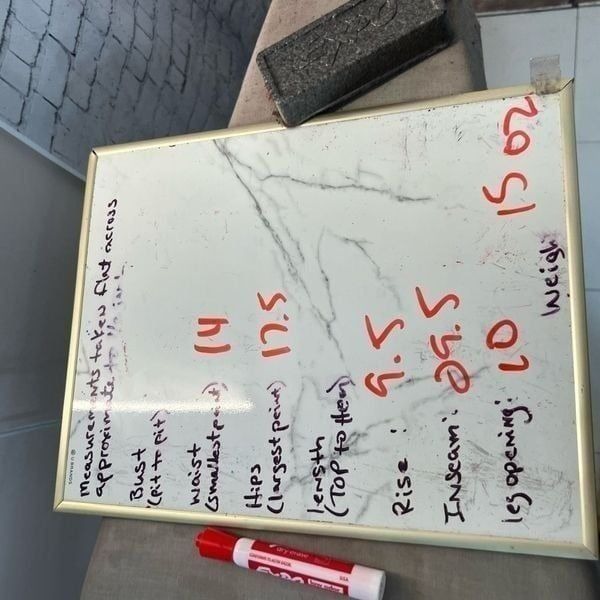 Measurements taken flat across
approximate to
Bust
(Pit to pit)
Waist 14
(smallest point)
Hips 17.5
(largest point)
Length
(TOP to Hem)
Rise: 9.5
Inseam: 29.5
leg opening: 10 15 oz
Weigh
U BRANDS
EXPO
dry erase
EXPO
USA